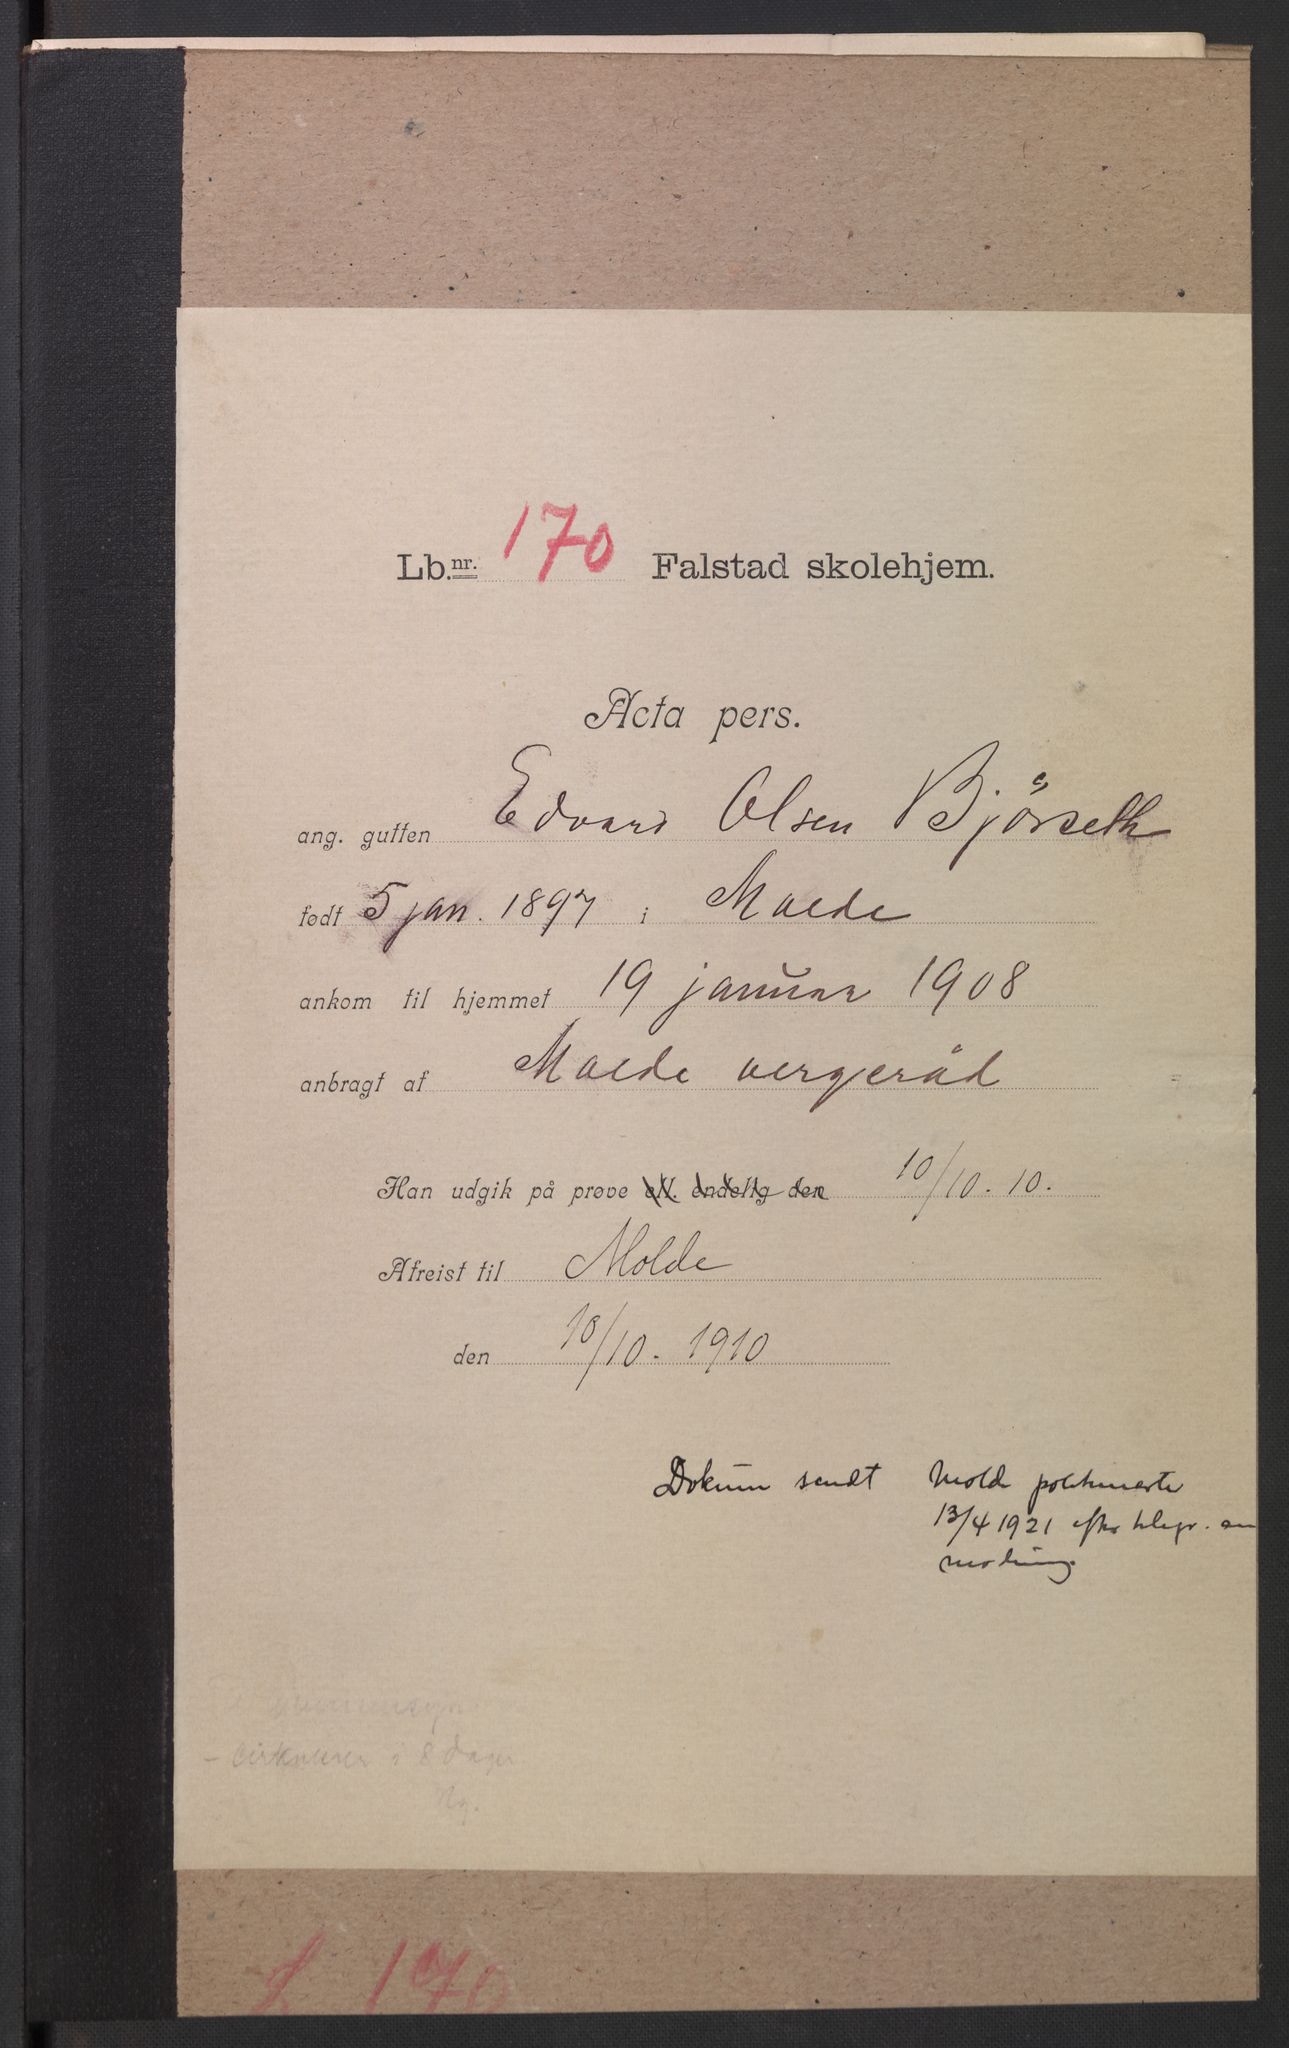 Lb.nr. 170 Falstad skolehjem.
Acta pers.
ang. gutten Edvard Olsen Bjørseth
født 5 jan. 1897 i Molde
ankom til hjemmet 19 januar 1908
anbragt af Molde vergeråd
Han udgik på prøve ell. endelig den 10/10. 10.
Afreist til Molde
den 10/10. 1910
Dokum sendt Molde politimester
13/4 1921 efter telegr. an
modning
- Cirkulerer i 8 dager
L 170